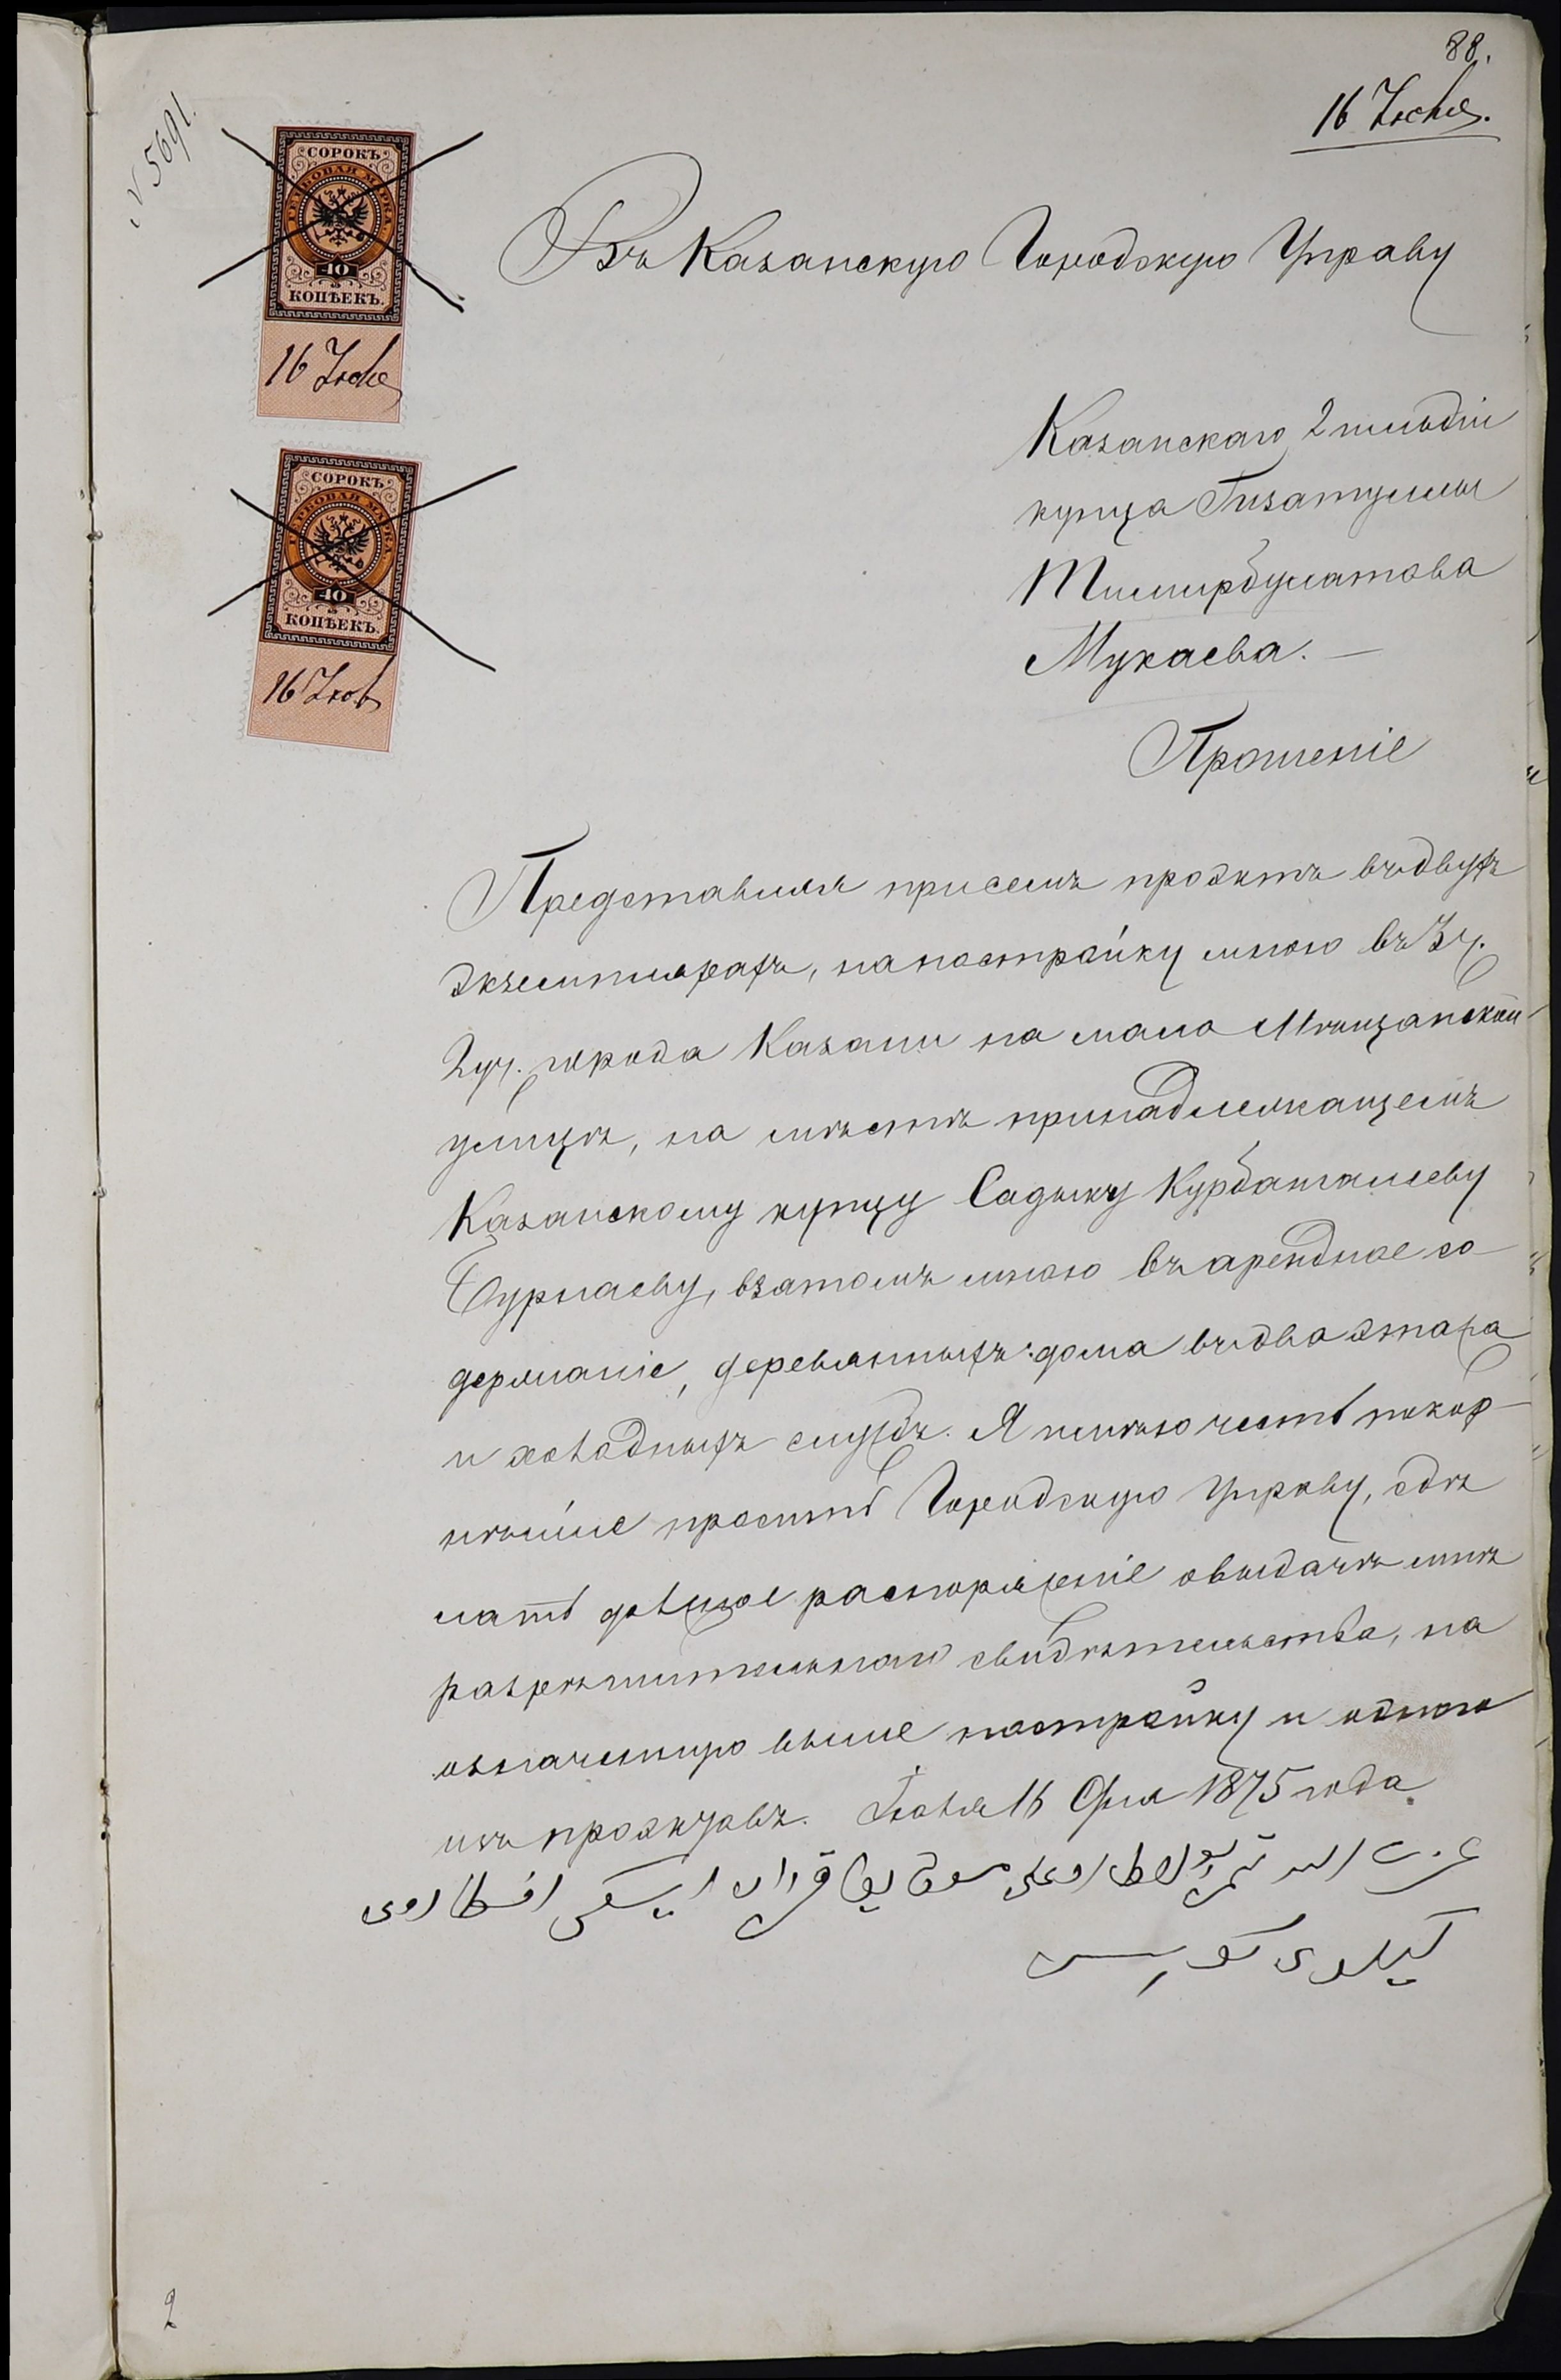 88.
16 Июля.
№ 5691.
СОРОКЪ
ГЕРБОВАЯ МАРКА.
40
КОПѢЕКЪ.
16 Июля
СОРОКЪ
ГЕРБОВАЯ МАРКА.
40
КОПѢЕКЪ.
16 Июл
Въ Казанскую Городскую Управу
Казанскаго 2 гильдіи
купца Гизатуллы
Тимирбулатова
Мукаева. —
Прошеніе
Представляя присемъ проэктъ въ двухъ
экземплярахъ, на постройку мною въ 3 ч.
2 уч. города Казани на мало Мѣщанской
улицѣ, на мѣстѣ принадлежащемъ
Казанскому купцу Садыку Курбангалееву
Бурнаеву, взятомъ мною въ арендное со-
держаніе, деревянныхъ: дома въ два этажа
и холодныхъ службъ. Я имѣю честь покор-
нѣйше просить Городскую Управу, сдѣ
лать должное распоряженіе о выдачѣ мнѣ
разрѣшительнаго свидѣтельства, на
означенную выше постройку и одного
изъ проэктовъ. Іюля 16 дня 1875 года.